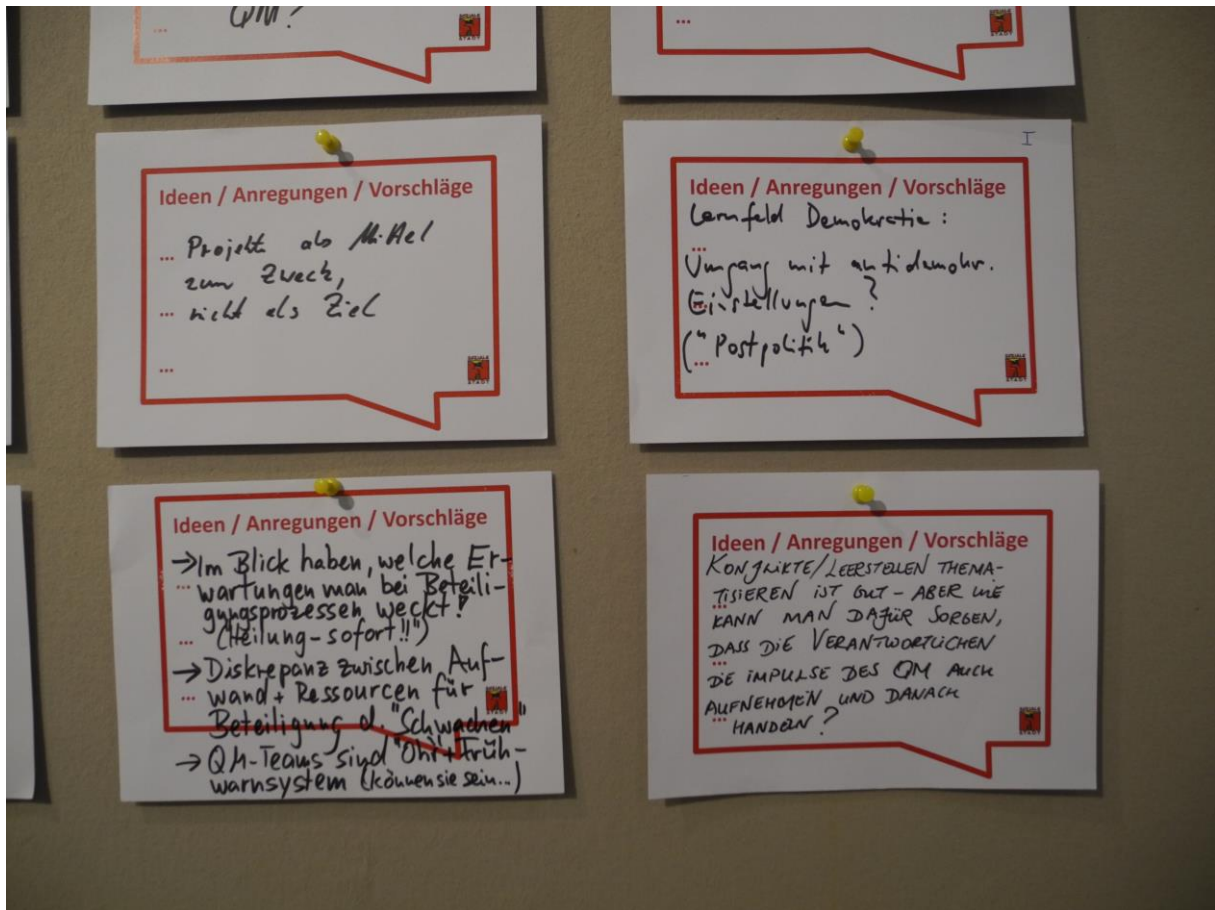 QM?
...
...
Ideen / Anregungen / Vorschläge
... Projekt als Mittel
zum Zweck,
... nicht als Ziel
...
SOZIALE
STADT
I
Ideen / Anregungen / Vorschläge
Lernfeld Demokratie:
...
Umgang mit antidemokr.
Einstellungen?
...
("Postpolitik")
...
SOZIALE
STADT
Ideen / Anregungen / Vorschläge
→ Im Blick haben, welche Er-
... wartungen man bei Beteili-
gungsprozessen weckt!
... (Heilung - sofort!!")
→ Diskrepanz zwischen Auf-
... wand + Ressourcen für
Beteiligung d. "Schwachen"
→ QM-Teams sind "Ohr" + Früh-
warnsystem (können sie sein...)
Ideen / Anregungen / Vorschläge
KONFLIKTE/LEERSTELLEN THEMA-
TISIEREN IST GUT - ABER WIE
...
KANN MAN DAFÜR SORGEN,
DASS DIE VERANTWORTLICHEN
...
DIE IMPULSE DES QM AUCH
AUFNEHMEN UND DANACH
...
HANDELN?
SOZIALE
STADT